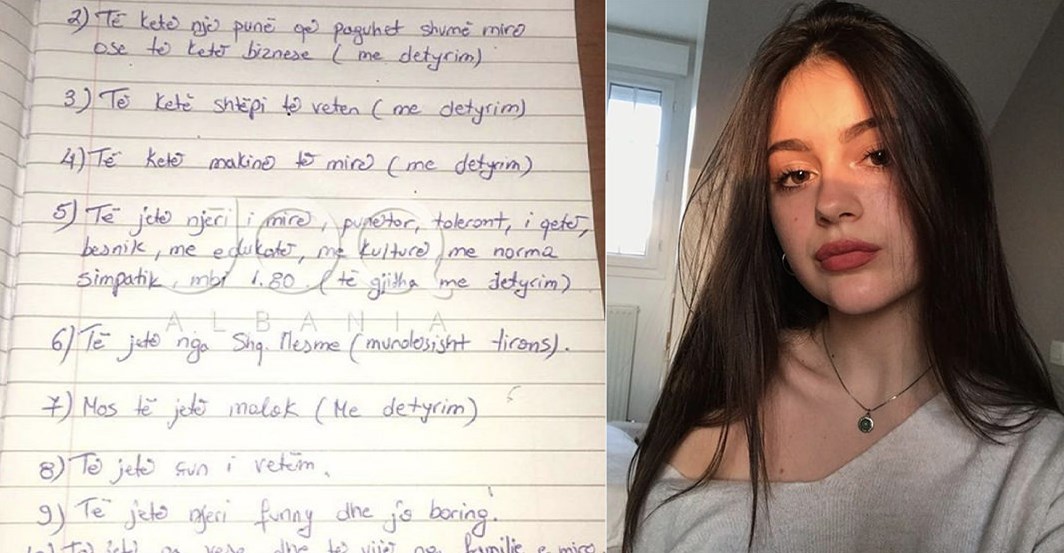 2) Të ketë një punë që paguhet shumë mirë
ose të ketë biznese ( me detyrim)
3) Të ketë shtëpi të veten ( me detyrim)
4) Të ketë makinë të mirë ( me detyrim)
5) Të jetë njeri i mirë, punëtor, tolerant, i qetë,
besnik, me edukatë, me kulturë, me norma
simpatik, mbi 1.80 ( të gjitha me detyrim)
ALBANIA
6) Të jetë nga Shq. Mesme ( mundësisht tirons).
7) Mos të jetë malok (Me detyrim)
8) Të jetë gun i vetëm.
9) Të jetë njeri funny dhe jo boring.
dhe të vijë nga familje e mirë